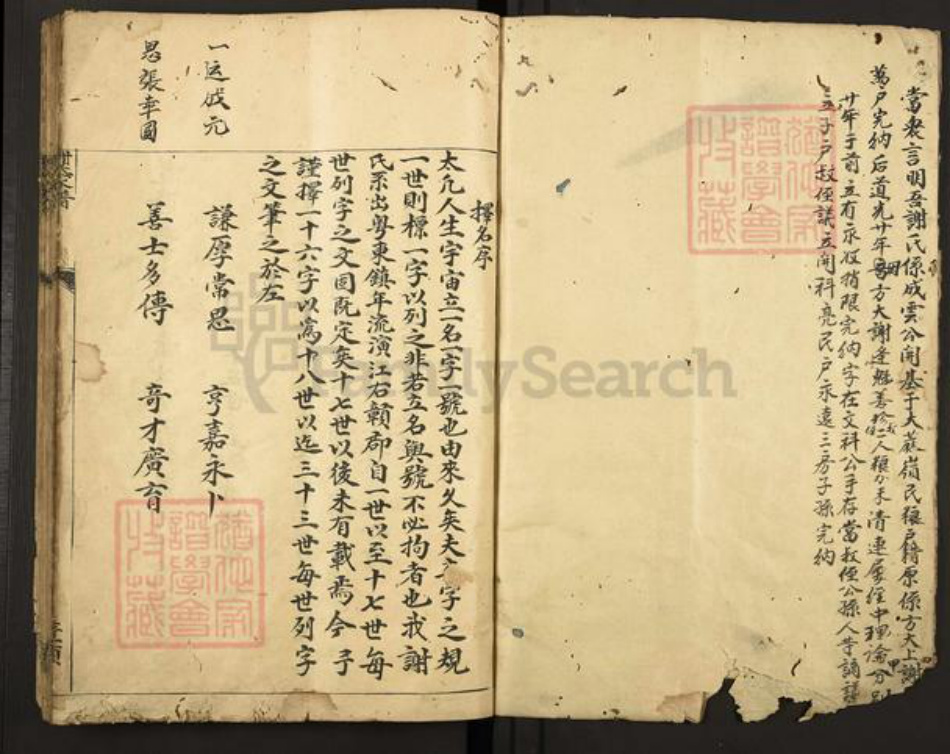 當衆言明吾謝氏係成雲公開基于大蔴嶺民糧戶籍原係方大上謝
萬戶完納后道光廿年 方大謝逢魁善 二人糧分未清連屢經中理論分別
廿年于前立有承役梢限完納字在文科公手存當叔侄公孫人等謫議
立子戶叔侄議立開科亮民戶永遠三房子孫完納
擇名序
太凢人生宇宙立一名一字一號也由來久矣夫立字之規
一世則標一字以列之非若立名與號不必拘者也我謝
氏系出粵東鎮年流演江右贛郡自一世以至十七世每
世列字之文固既定矣十七世以後未有載焉今予
謹擇一十六字以為十八世以迄三十三世每世列字
之文筆之於左
謙厚常思 亨嘉永卜
善士多傳 奇才廣育
一运成元
思張奉國
譜學會
收藏
FamilySearch